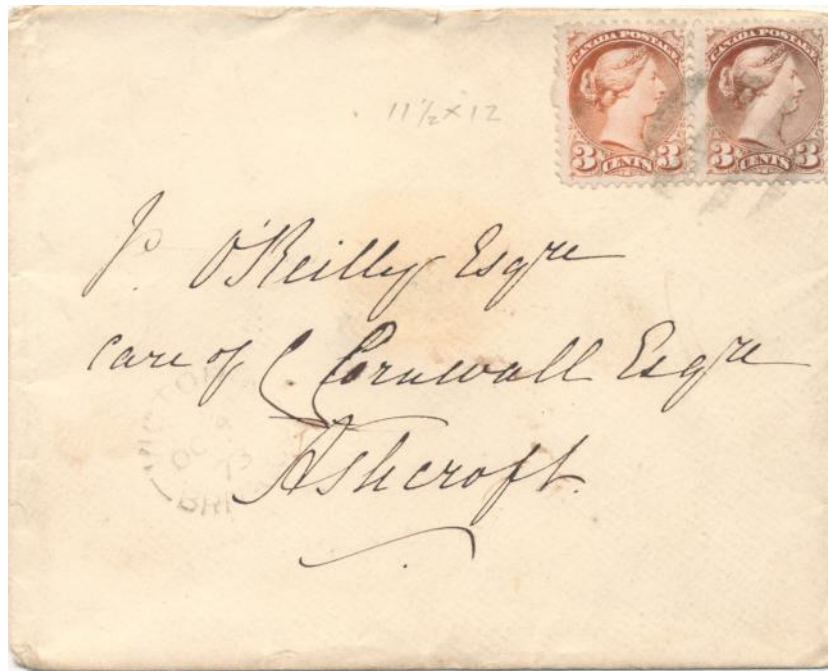 CANADA POSTAGE CANADA POSTAGE
3 CENTS 3 3 CENTS 3
11½ x 12
P. O'Reilly Esqre
care of C Cornwall Esqre
Ashcroft.
VICTORIA
OC
BRI